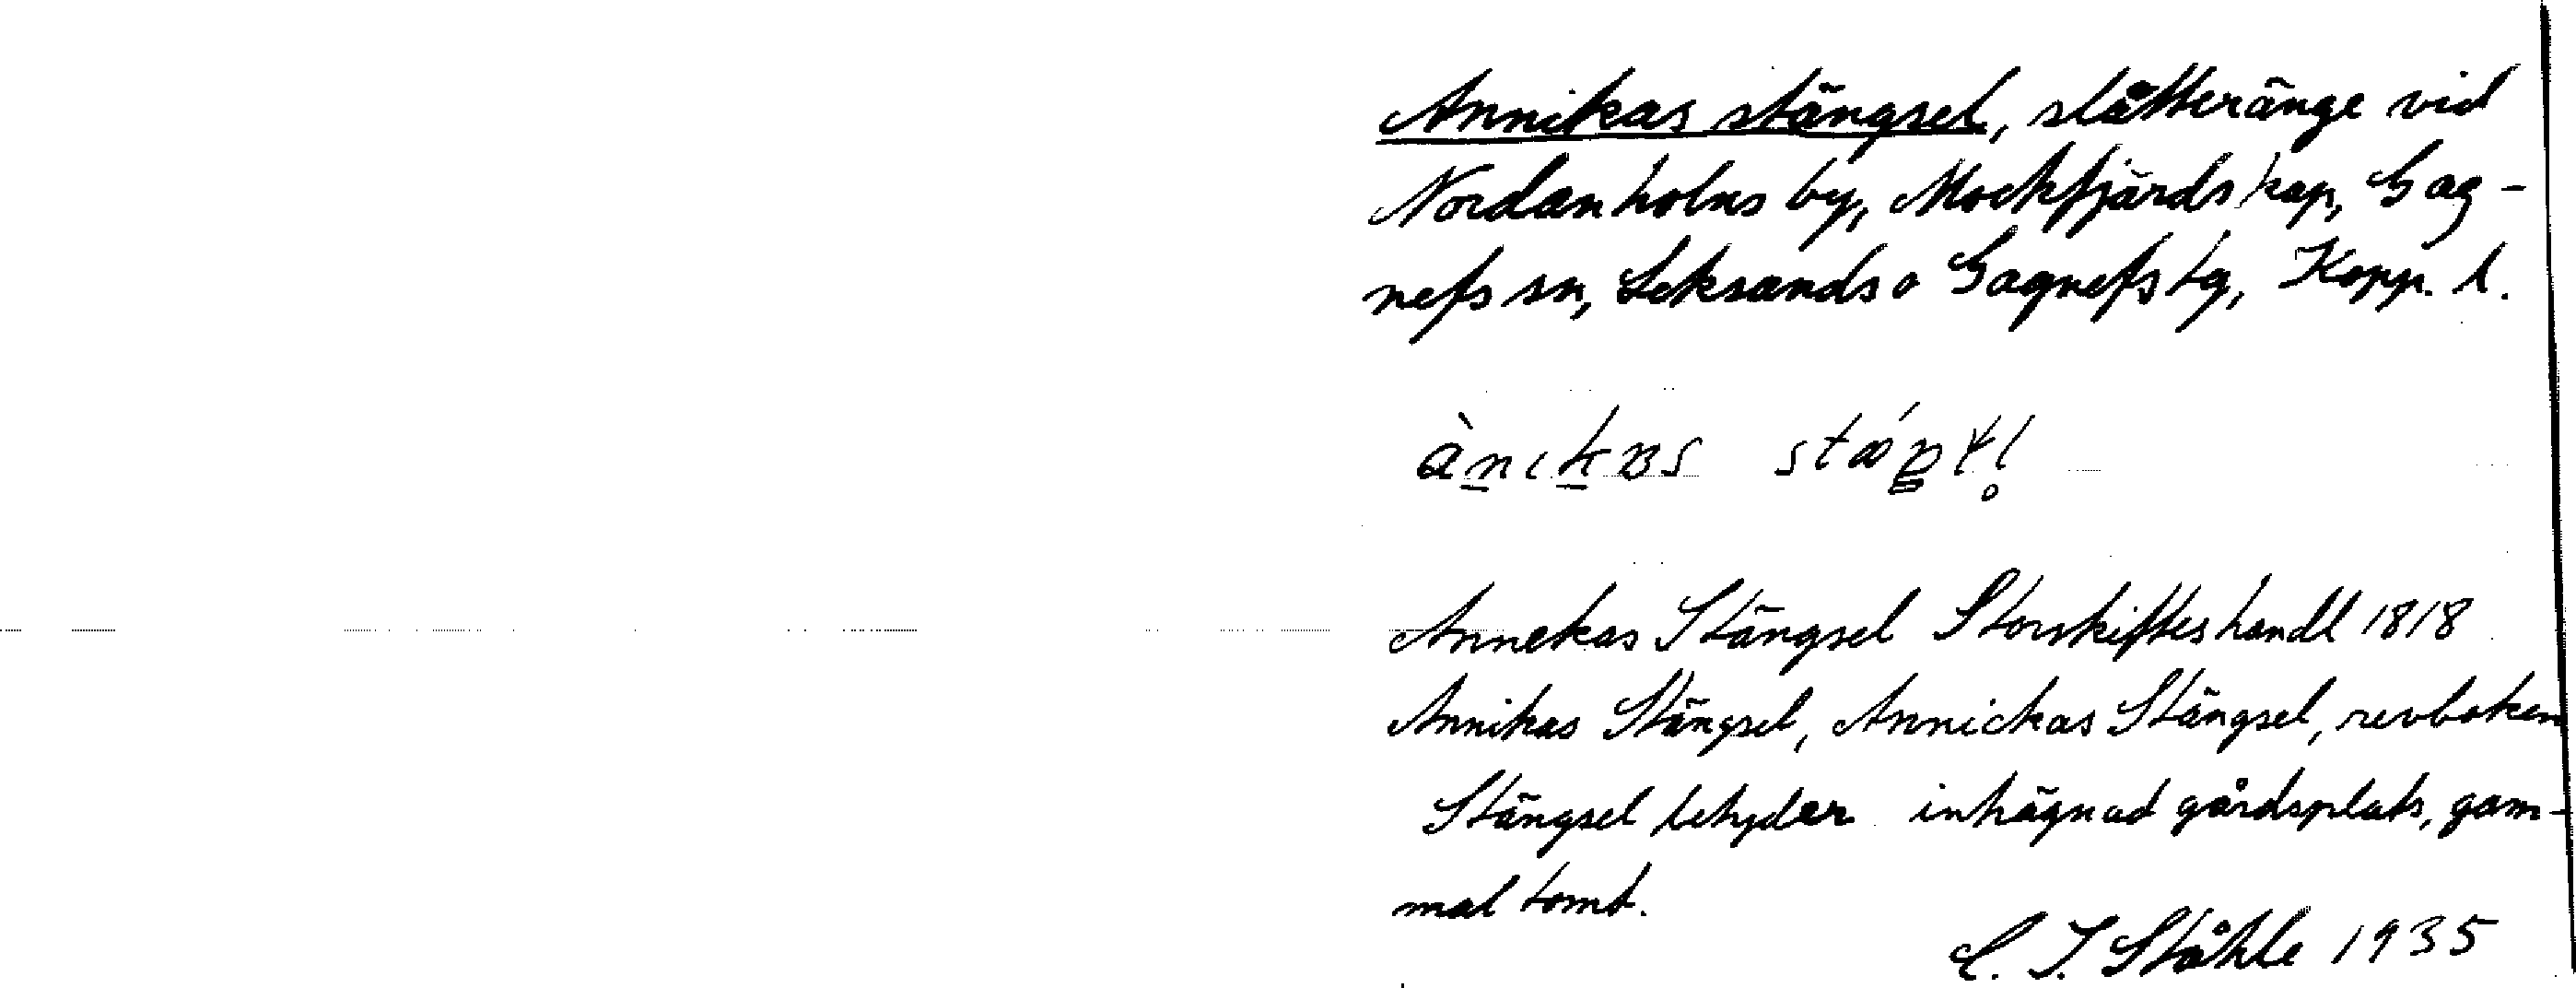 Annikas stängsel, slåtteränge vid
Nordanholns by, Mockfjärds kap, Gag-
nefs sn, Leksands o Gagnefs tg, Kopp. l.
Annekas Stängsel Storskifteshandl 1818
Annikas Stängsel, Annickas Stängsel, revboken
Stängsel betyder inhägnad gårdsplats, gam-
mal tomt.
C. I. Ståhle 1935